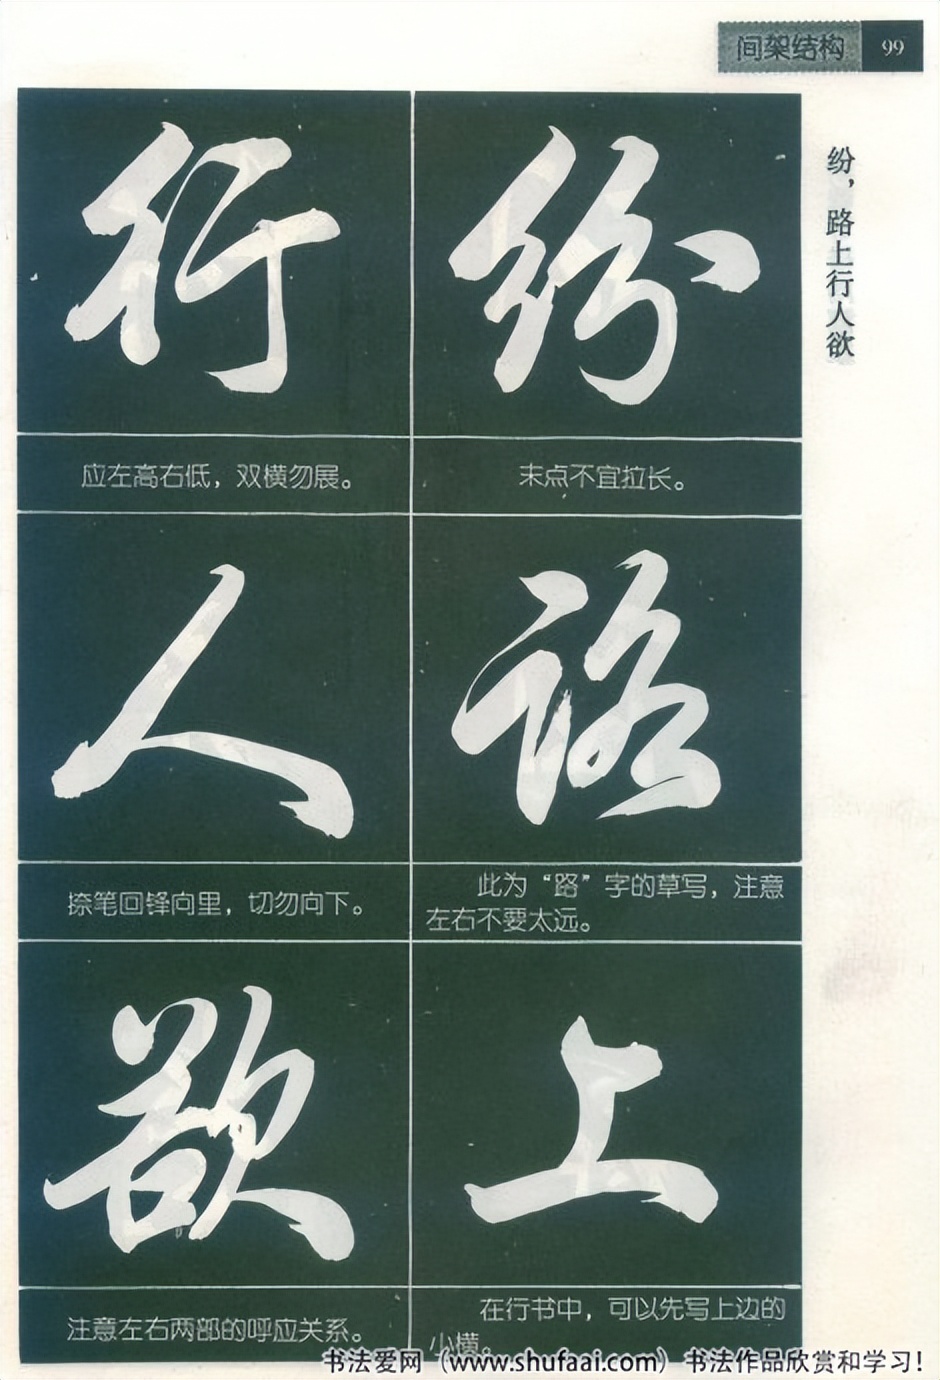 间架结构 99
纷，路上行人欲
纷
末点不宜拉长。
路
此为“路”字的草写，注意
左右不要太远。
上
在行书中，可以先写上边的
小横。
行
应左高右低，双横勿展。
人
捺笔回锋向里，切勿向下。
欲
注意左右两部的呼应关系。
书法爱网（www.shufaai.com）书法作品欣赏和学习！